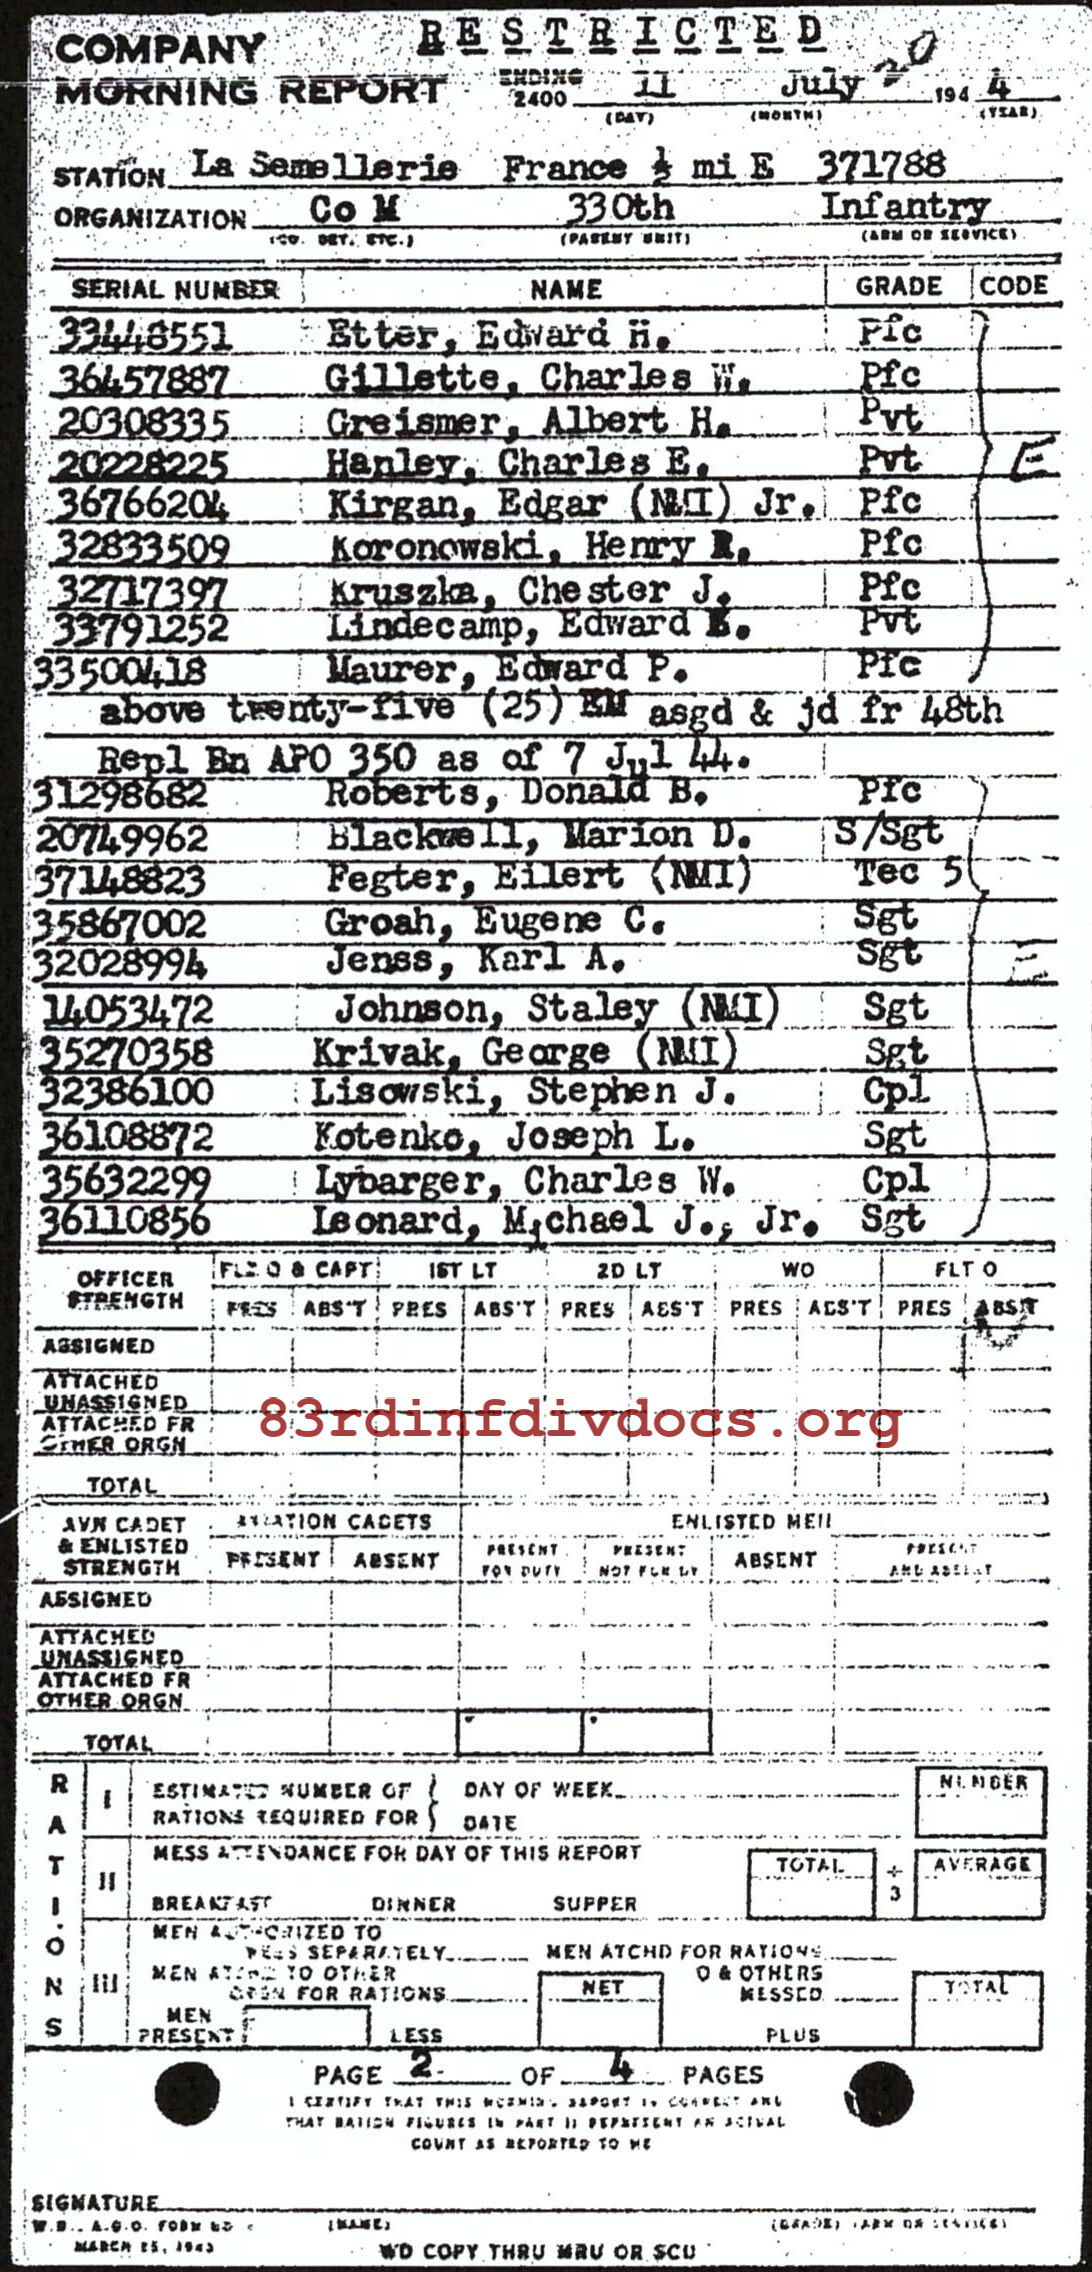 RESTRICTED
COMPANY
MORNING REPORT ENDING 2400 11 July 20 1944
(DAY) (MONTH) (YEAR)
STATION La Semellerie France ½ mi E 371788
ORGANIZATION Co M 330th Infantry
(CO. DET. ETC.) (PARENT UNIT) (ARM OR SERVICE)
SERIAL NUMBER NAME GRADE CODE
33448551 Etter, Edward H. Pfc
36457887 Gillette, Charles W. Pfc
20308335 Greismer, Albert H. Pvt
20228225 Hanley, Charles E. Pvt E
36766204 Kirgan, Edgar (NMI) Jr. Pfc
32833509 Koronowski, Henry R. Pfc
32717397 Kruszka, Chester J. Pfc
33791252 Lindecamp, Edward E. Pvt
33500418 Maurer, Edward P. Pfc
above twenty-five (25) EM asgd & jd fr 48th
Repl Bn APO 350 as of 7 Jul 44.
31298682 Roberts, Donald B. Pfc
20749962 Blackwell, Marion D. S/Sgt
37148823 Fegter, Eilert (NMI) Tec 5
35867002 Groah, Eugene C. Sgt
32028994 Jenss, Karl A. Sgt E
14053472 Johnson, Staley (NMI) Sgt
35270358 Krivak, George (NMI) Sgt
32386100 Lisowski, Stephen J. Cpl
36108872 Kotenko, Joseph L. Sgt
35632299 Lybarger, Charles W. Cpl
36110856 Leonard, Michael J., Jr. Sgt
OFFICER STRENGTH FLD O & CAPT 1ST LT 2D LT WO FLT O
PRES ABS'T PRES ABS'T PRES ABS'T PRES ABS'T PRES ABS'T
ASSIGNED
ATTACHED UNASSIGNED
ATTACHED FR OTHER ORGN
TOTAL
83rdinfdivdocs.org
AVN CADET & ENLISTED STRENGTH AVIATION CADETS ENLISTED MEN
PRESENT ABSENT PRESENT FOR DUTY PRESENT NOT FOR DY ABSENT PRESENT AND ABSENT
ASSIGNED
ATTACHED UNASSIGNED
ATTACHED FR OTHER ORGN
TOTAL
RATIONS
I ESTIMATED NUMBER OF RATIONS REQUIRED FOR DAY OF WEEK DATE NUMBER
II MESS ATTENDANCE FOR DAY OF THIS REPORT TOTAL ÷ 3 AVERAGE
BREAKFAST DINNER SUPPER
III MEN AUTHORIZED TO MESS SEPARATELY MEN ATCHD FOR RATIONS
MEN ATCHD TO OTHER ORGN FOR RATIONS NET O & OTHERS MESSED TOTAL
MEN PRESENT LESS PLUS
PAGE 2 OF 4 PAGES
I CERTIFY THAT THIS MORNING REPORT IS CORRECT AND
THAT RATION FIGURES IN PART II REPRESENT AN ACTUAL
COUNT AS REPORTED TO ME
SIGNATURE
W.D., A.G.O. FORM NO (NAME) (GRADE) (ARM OR SERVICE)
MARCH 25, 1943
WD COPY THRU MRU OR SCU